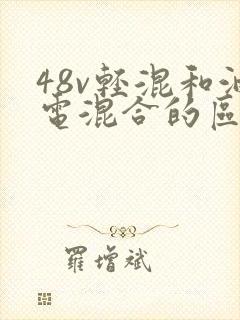 48v輕混和油
電混合的區
羅增斌